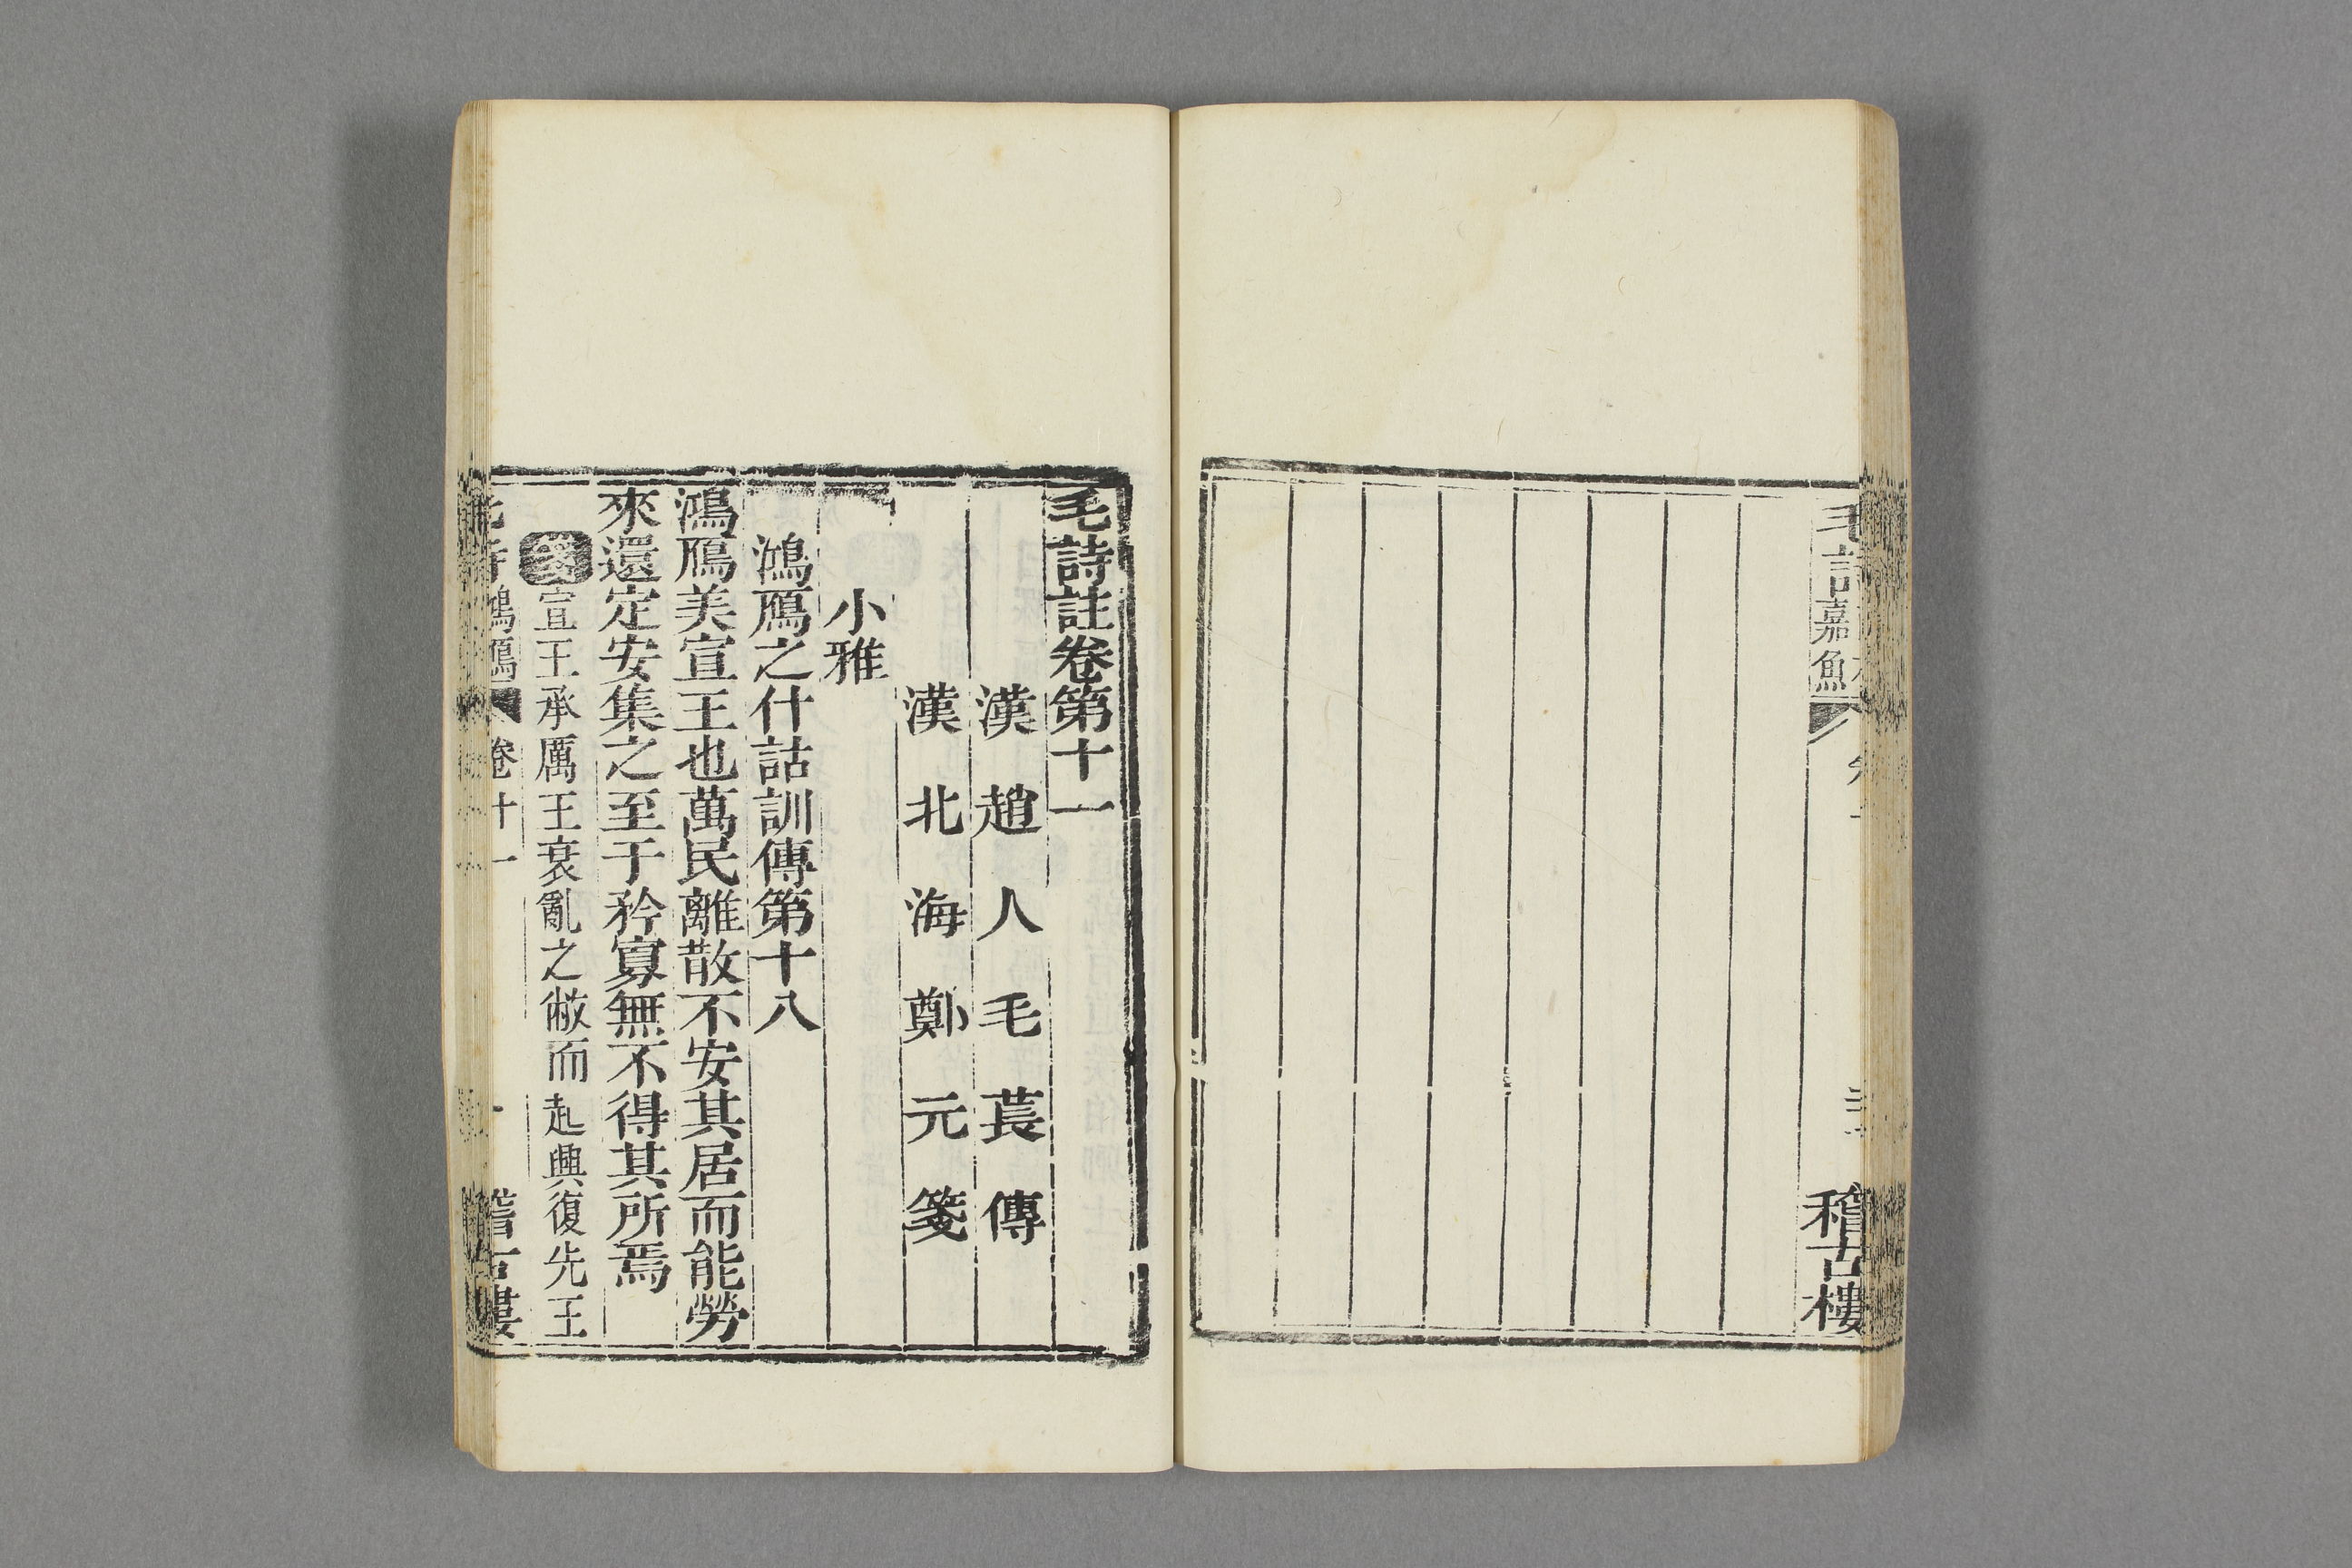 毛詩
嘉魚
稽古樓
毛詩註卷第十一
漢趙人毛萇傳
漢北海鄭元箋
小雅
鴻鴈之什詁訓傳第十八
鴻鴈美宣王也萬民離散不安其居而能勞
來還定安集之至于矜寡無不得其所焉
箋宣王承厲王衰亂之敝而起興復先王
鴻鴈
卷十一
稽古樓